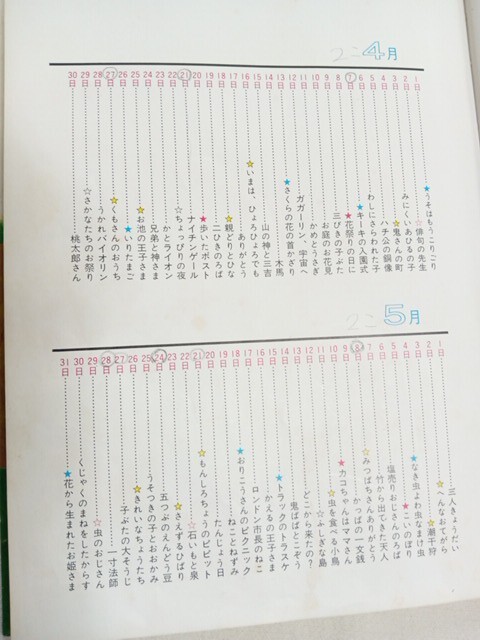 2こ 4月
1日 ★うそはもうこりごり
2日 ☆俳句の先生
3日 みにくいあひるの子
4日 ★鬼さんの町
5日 ハチ公の銅像
6日 わしにさらわれた子
7日 ★キーキの入園式
8日 ★花祭りの日に
9日 三びきの子ぶた
10日 お庭のお花見
11日 かめとうさぎ
12日 ガガーリン、宇宙へ
13日 ★さくらの花の首かざり
14日 木馬
15日 山の神と三吉
16日 ★いまは、ひょろひょろでも
17日 ありがとう
18日 ★親どりとひな
19日 二ひきのろば
20日 ★歩いたポスト
21日 ナイチンゲール
22日 ☆ちょっぴりの夜
23日 かとライオン
24日 兄弟と神さま
25日 ★お池の王子さま
26日 ★いりたまご
27日 ★くもさんのおうち
28日 うかれバイオリン
29日 ☆さかなたちのお祭り
30日 桃太郎さん
2こ 5月
1日 三人きょうだい
2日 ★へんなおてがら
3日 ★潮干狩
4日 ★なき虫よわ虫なまけ虫
5日 ★こいのぼり
6日 塩売りおじさんのろば
7日 竹から出てきた天人
8日 ☆みつばちさんありがとう
9日 かっぱの一文銭
10日 ★カコちゃんはママさん
11日 ★虫を食べる小鳥
12日 ☆ふしぎな島
13日 どこから来たの?
14日 鬼ばばとこぞう
15日 ★トラックのトラスケ
16日 かえるの王子さま
17日 ロンドン市長のねこ
18日 ★おりこうさんのピクニック
19日 ねことねずみ
20日 たんじょう日
21日 ★もんしろちょうのピピット
22日 ☆石いもと泉
23日 ★さえずるひばり
24日 五つぶのえんどう豆
25日 うそつきの子とおおかみ
26日 ★きれいなちょうたち
27日 子ぶたの大そうじ
28日 一寸法師
29日 ☆虫のおじさん
30日 くじゃくのまねをしたからす
31日 ★花から生まれたお姫さま